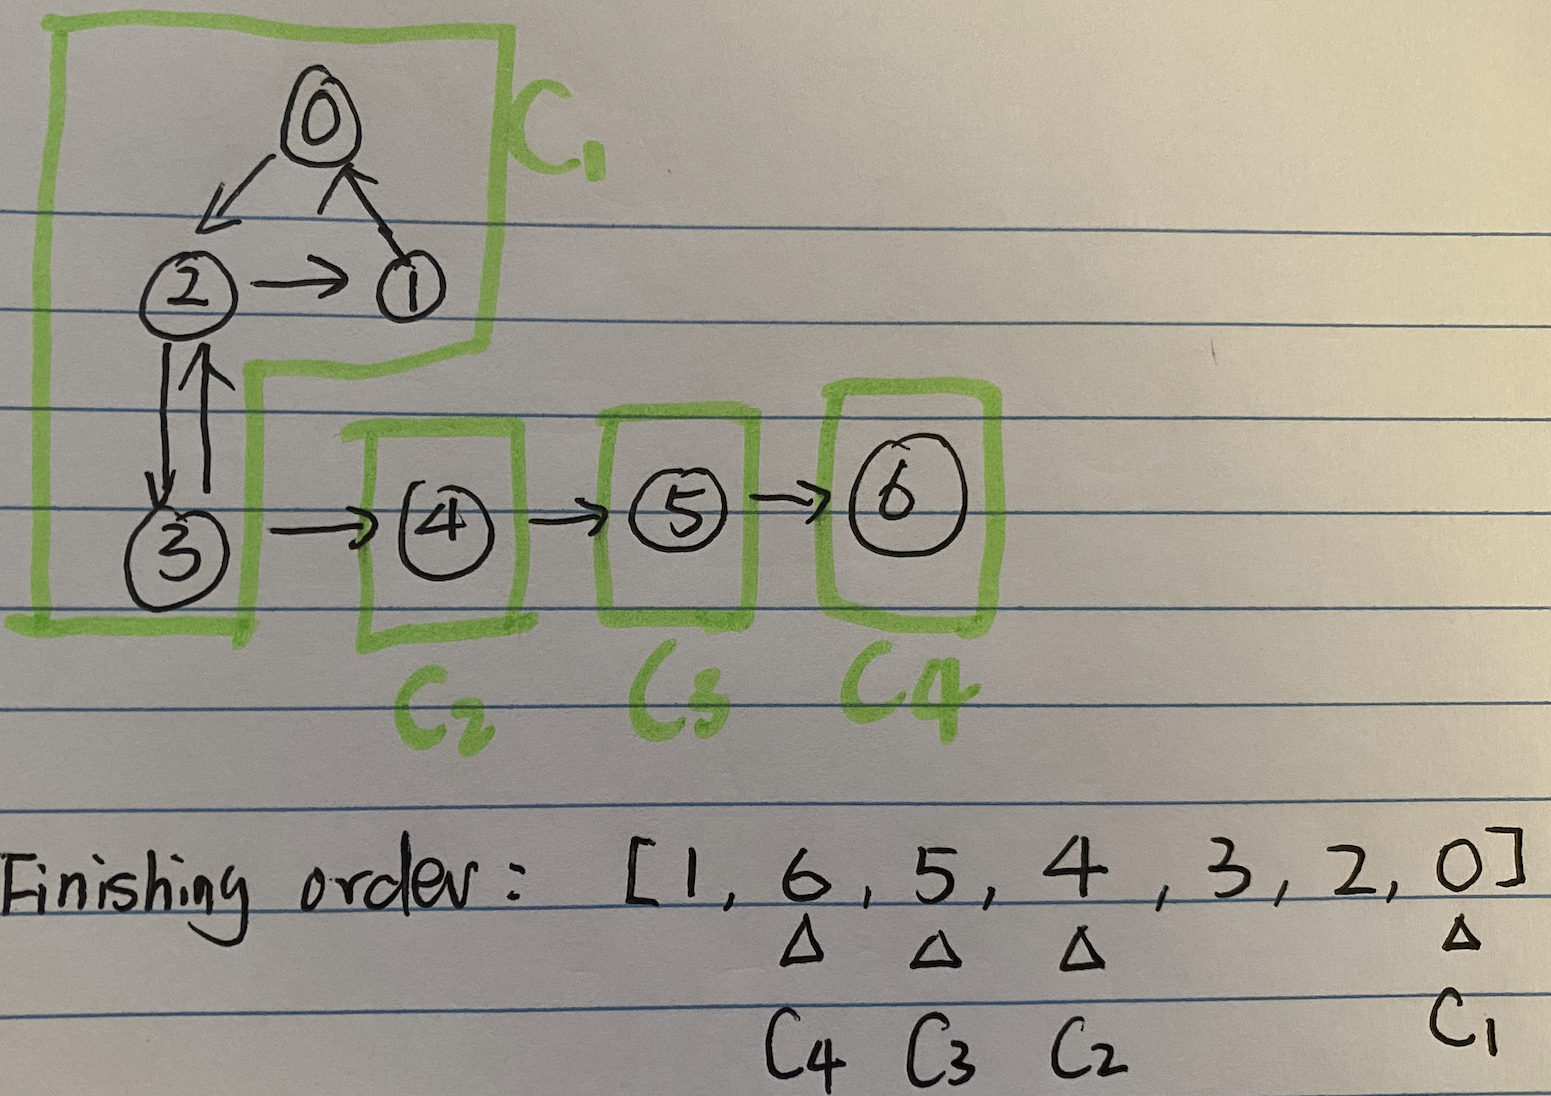 0
C1
2 1
3 4 5 6
C2 C3 C4
Finishing order: [1, 6, 5, 4, 3, 2, 0]
C4 C3 C2 C1